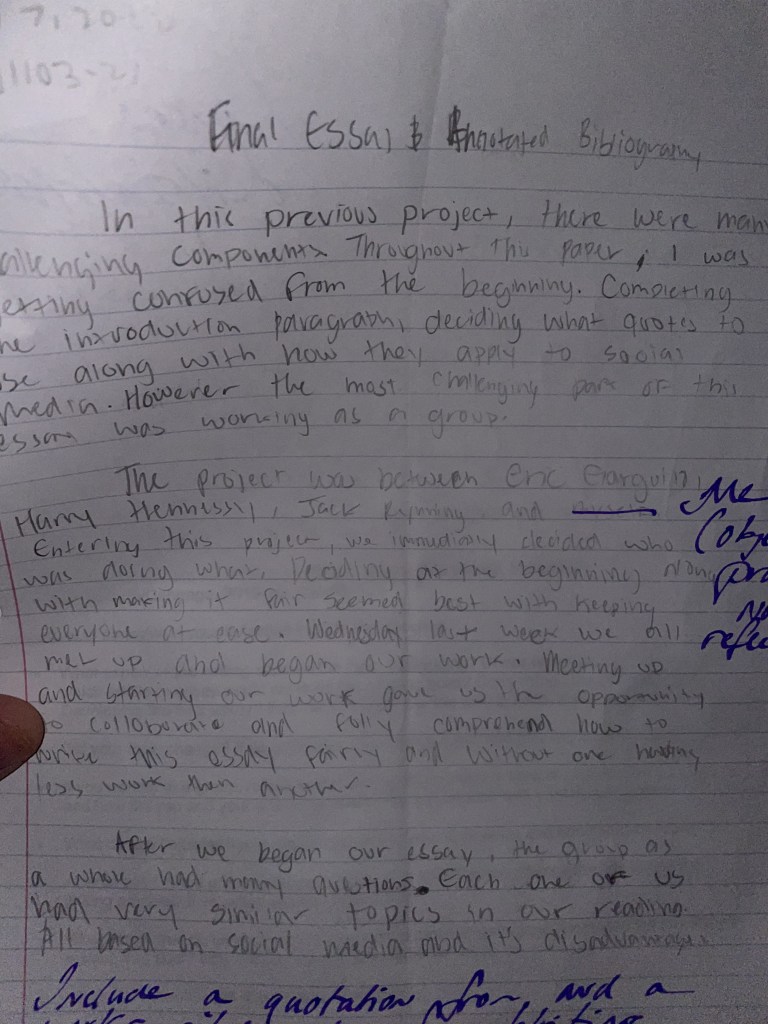 7, 20
1103-21
Final Essay & Annotated Bibliography
In this previous project, there were many
allenging components. Throughout this paper, I was
etting confused from the beginning. Completing
he introduction paragraph, deciding what quotes to
se along with how they apply to social
media. However the most challenging part of this
essay was working as a group.
The project was between Eric
Harry Hennessy, Jack and
Me
Entering this project, we immediatly decided who
(obje
was doing what. Deciding at the beginning along
pro
with making it fair seemed best with keeping
everyone at ease. Wednesday last week we all
refle
met up and began our work. Meeting up
and starting our work gave us the opportunity
to collaborate and fully comprehend how to
write this essay fairly and without one having
less work then another.
After we began our essay, the group as
a whole had many questions. Each one of us
had very similar topics in our reading.
All based on social media abd it's disadvantages.
Include a quotation from, and a